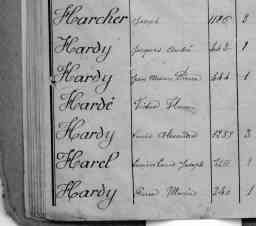 Harcher Joseph 3
Hardy Jacques André 1
Hardy Jean Marie Pierre 444 1
Hardé Victor
Hardy Louis Alexandre 3
Harel Louis Joseph 1
Hardy Pierre Marie 240 1